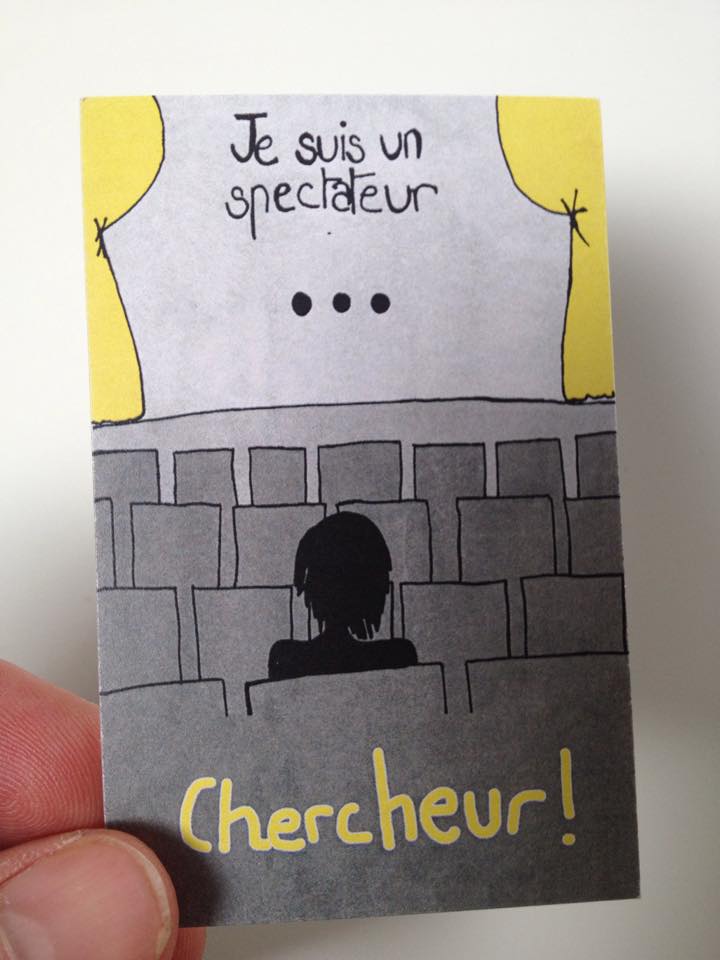 Je suis un
spectateur
...
Chercheur!